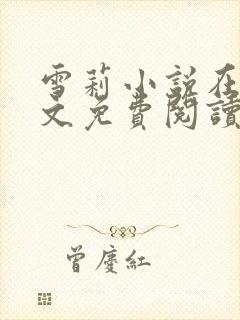 雪莉小說在
文免費閱讀
曾慶紅